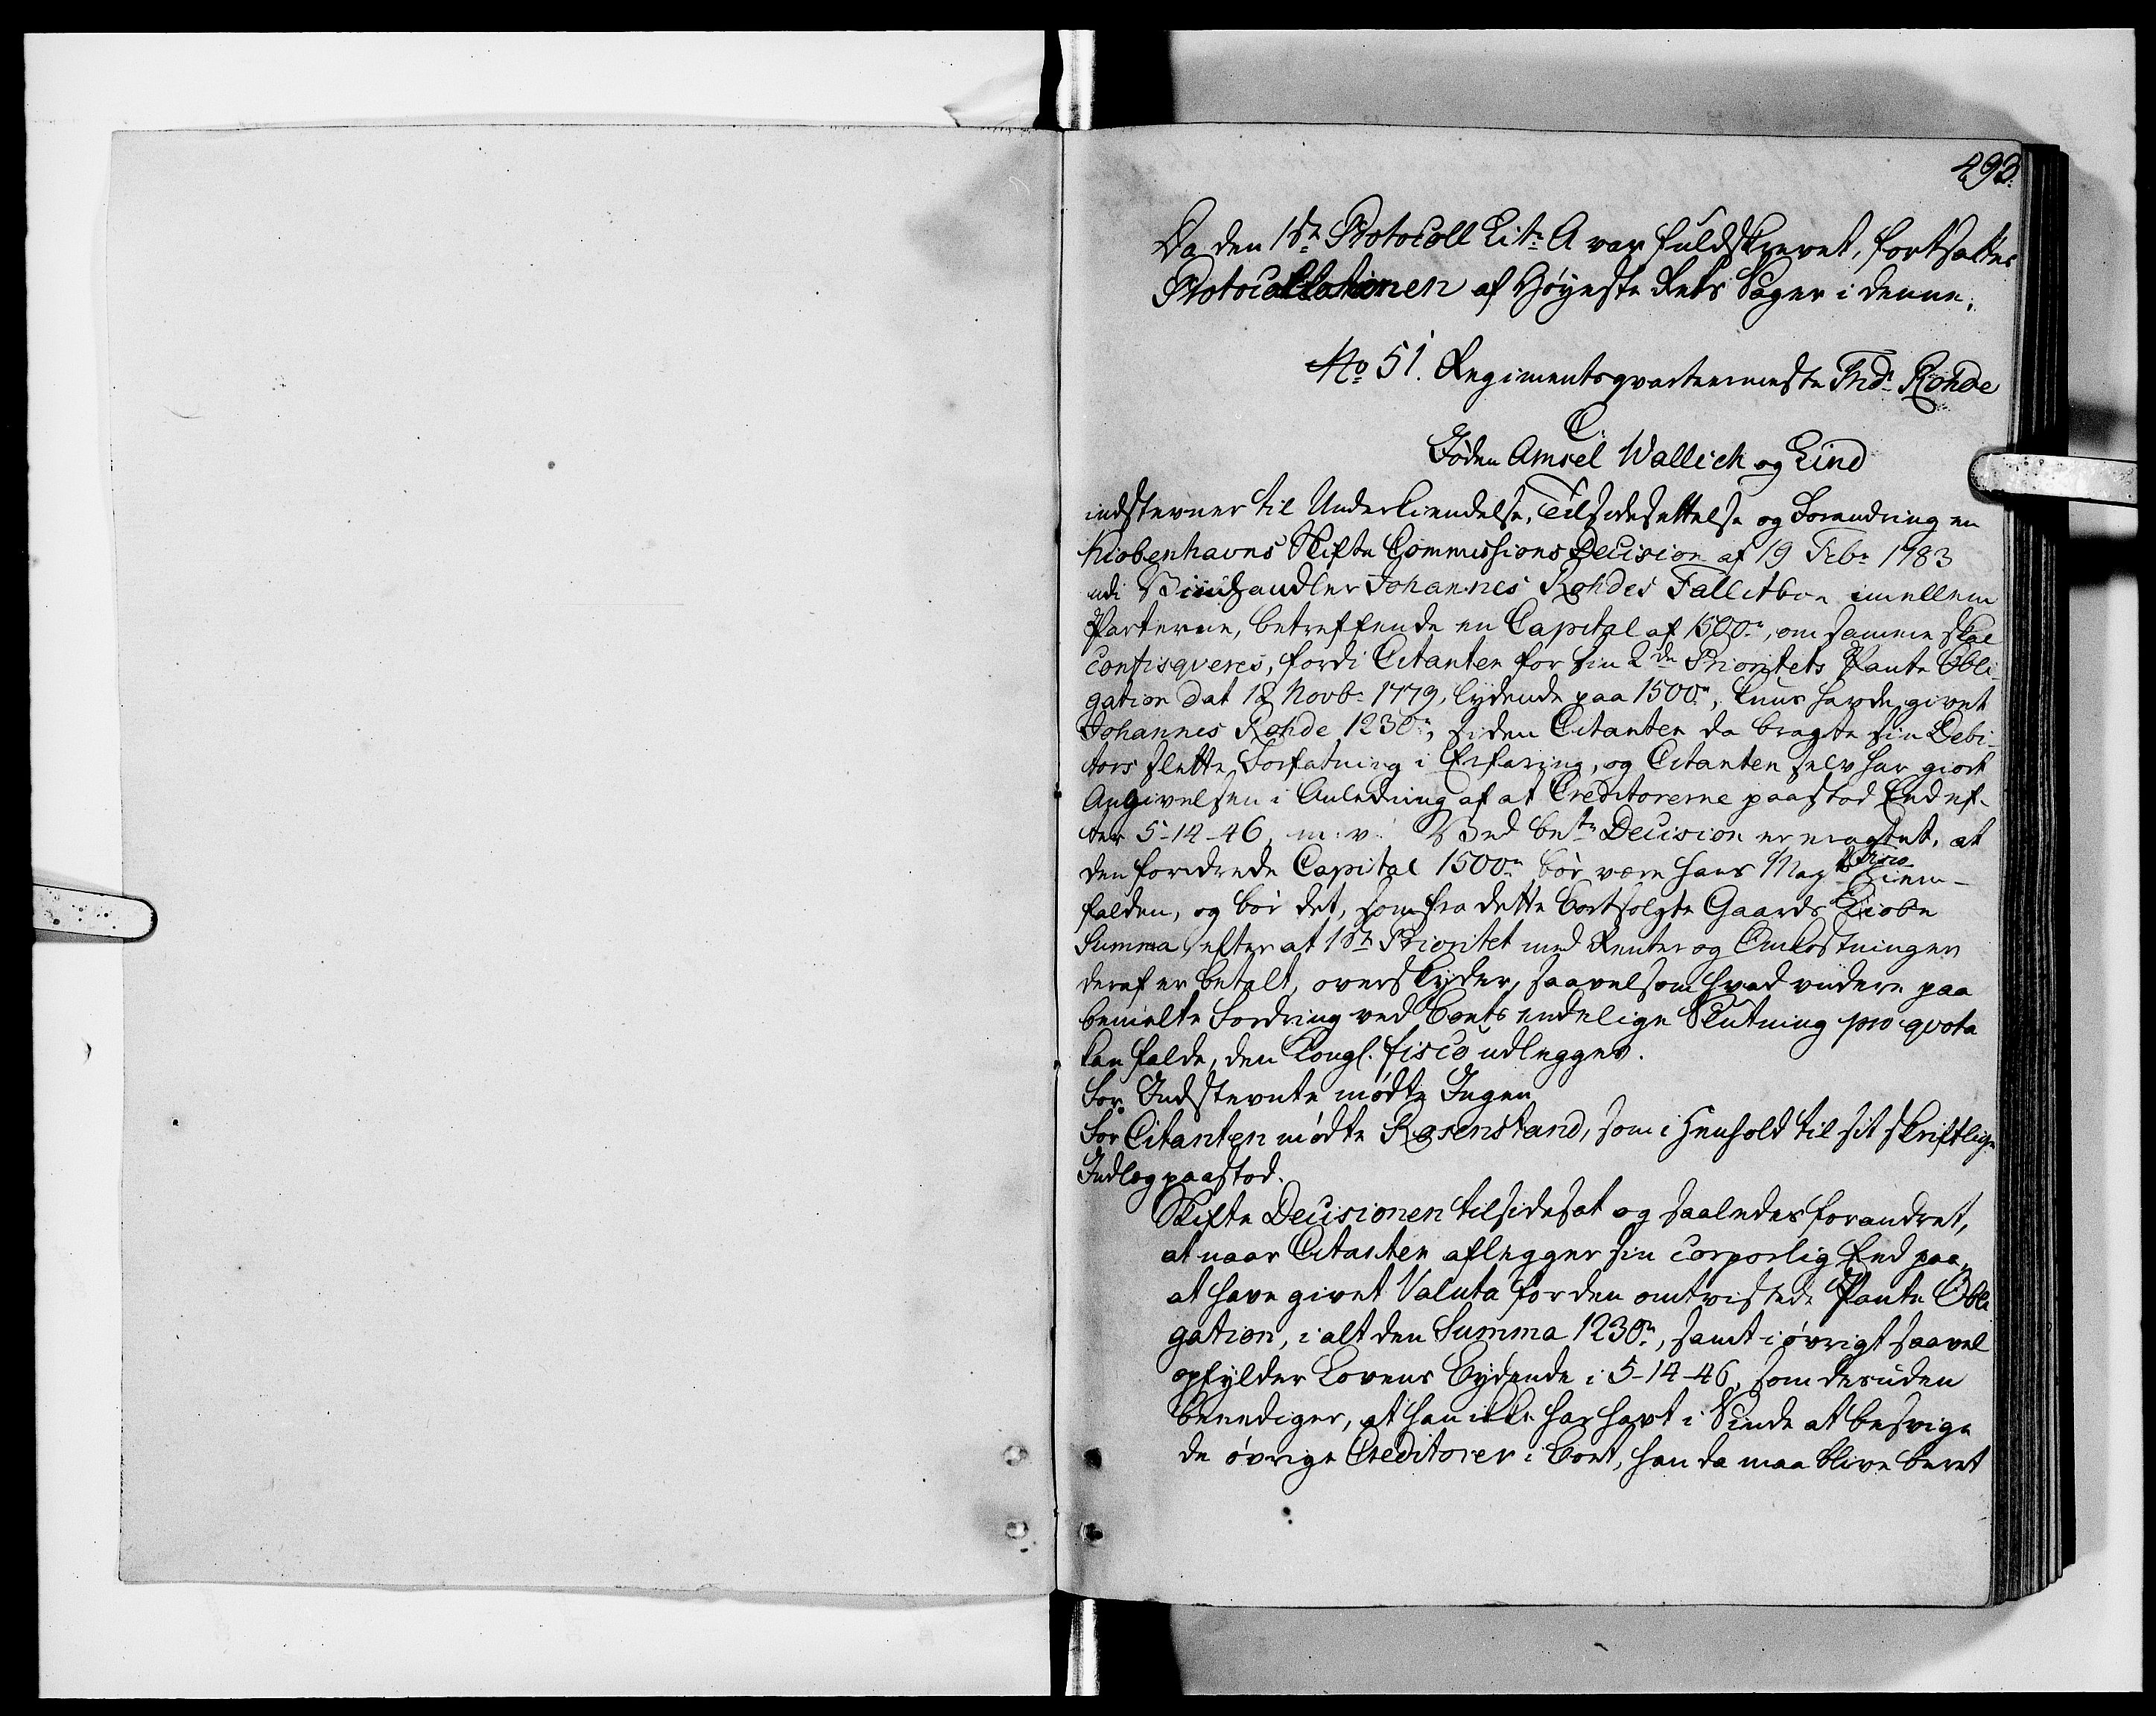 493.
Da den 1ste Protocoll Litr A var fuldskrevet, fortsattes
Protocollationen af Høyeste Rets Sager i denne.
No 51. Regimentsqvarteermeste Frid: Rohde
C:
Jøden Amsel Wallich og Lind
indstevner til Underkiendelse, Tilsidesettelse og Forandring en
Kiøbenhavns Skifte Commissions Decision af 19 Febr 1783
udi Viinhandler Johannes Rohdes Fallitboe imellem
Parterne, betreffende en Capital af 1500r, om samme skal
confisqveres, fordi Citanten for sin 2den Prioritets Pante Obli-
gation dat 12 Novbr 1779, lydende paa 1500r, kuns havde givet
Johannes Rohde 1230r, siden Citanten da bragte sin Debi-
tors slette Forfatning i Erfaring, og Citanten selv har giort
Angivelsen i Anledning af at Creditorerne paastod Eed ef-
ter 5-14-46, m: v: Ved bete Decision er eragtet, at
den fordrede Capital 1500r bør være Hans Mayts Fisco hiem-
falden, og bør det, som fra dette bortsolgte Gaards Kiøbe
Summa, efter at 1ste Prioritet med Renter og Omkostninger
deraf er betalt, overskyder, saavelsom hvad videre paa
bemelte Fordring ved Boets endelige Slutning pro qvota
kan falde, den Kongl. fisco udlegges.
For Indstevnte mødte Ingen
For Citanten mødte Rosenstand, som i Henhold til sit skriftlige
Indlæg paastod.
Skifte Decisionen tilsidesat og saaledes forandret,
at naar Citanten aflegger sin corporlig Eed paa,
at have givet Valuta for den omtvistede Pante Obli
gation, i alt den Summa 1230r, samt i øvrigt saavel
opfylder Lovens Bydende i 5-14-46, som desuden
beeediger, at han ikke har havt i Sinde at besvige
de øvrige Creditorer i Boet, han da maa blive beret